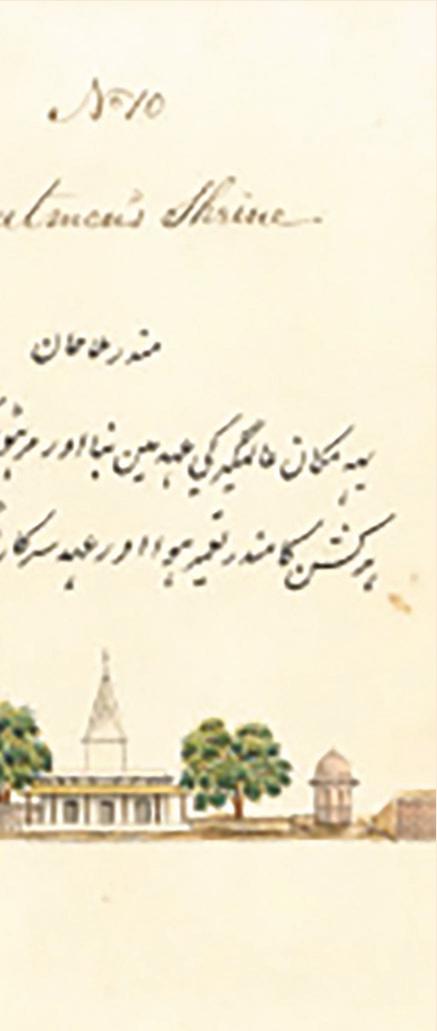 No 10
utmen's Shrine
مندر ملاحان
یہہ مکان عالمگیر کی عہد مین بنا اور مرہٹو
ہرکشن کا مندر تعمیر ہوا اور عہد سرکار